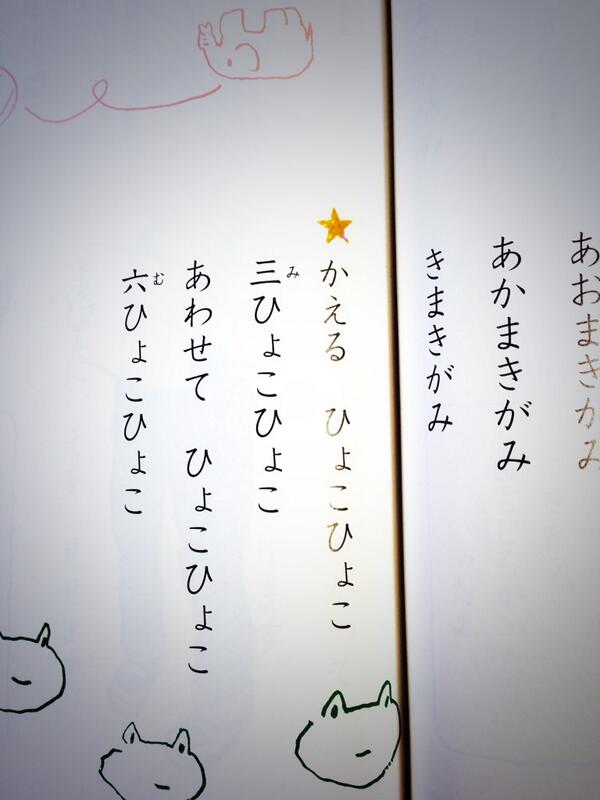 あおまきがみ
あかまきがみ
きまきがみ
かえる ひょこひょこ
三ひょこひょこ
あわせて ひょこひょこ
六ひょこひょこ
み
む